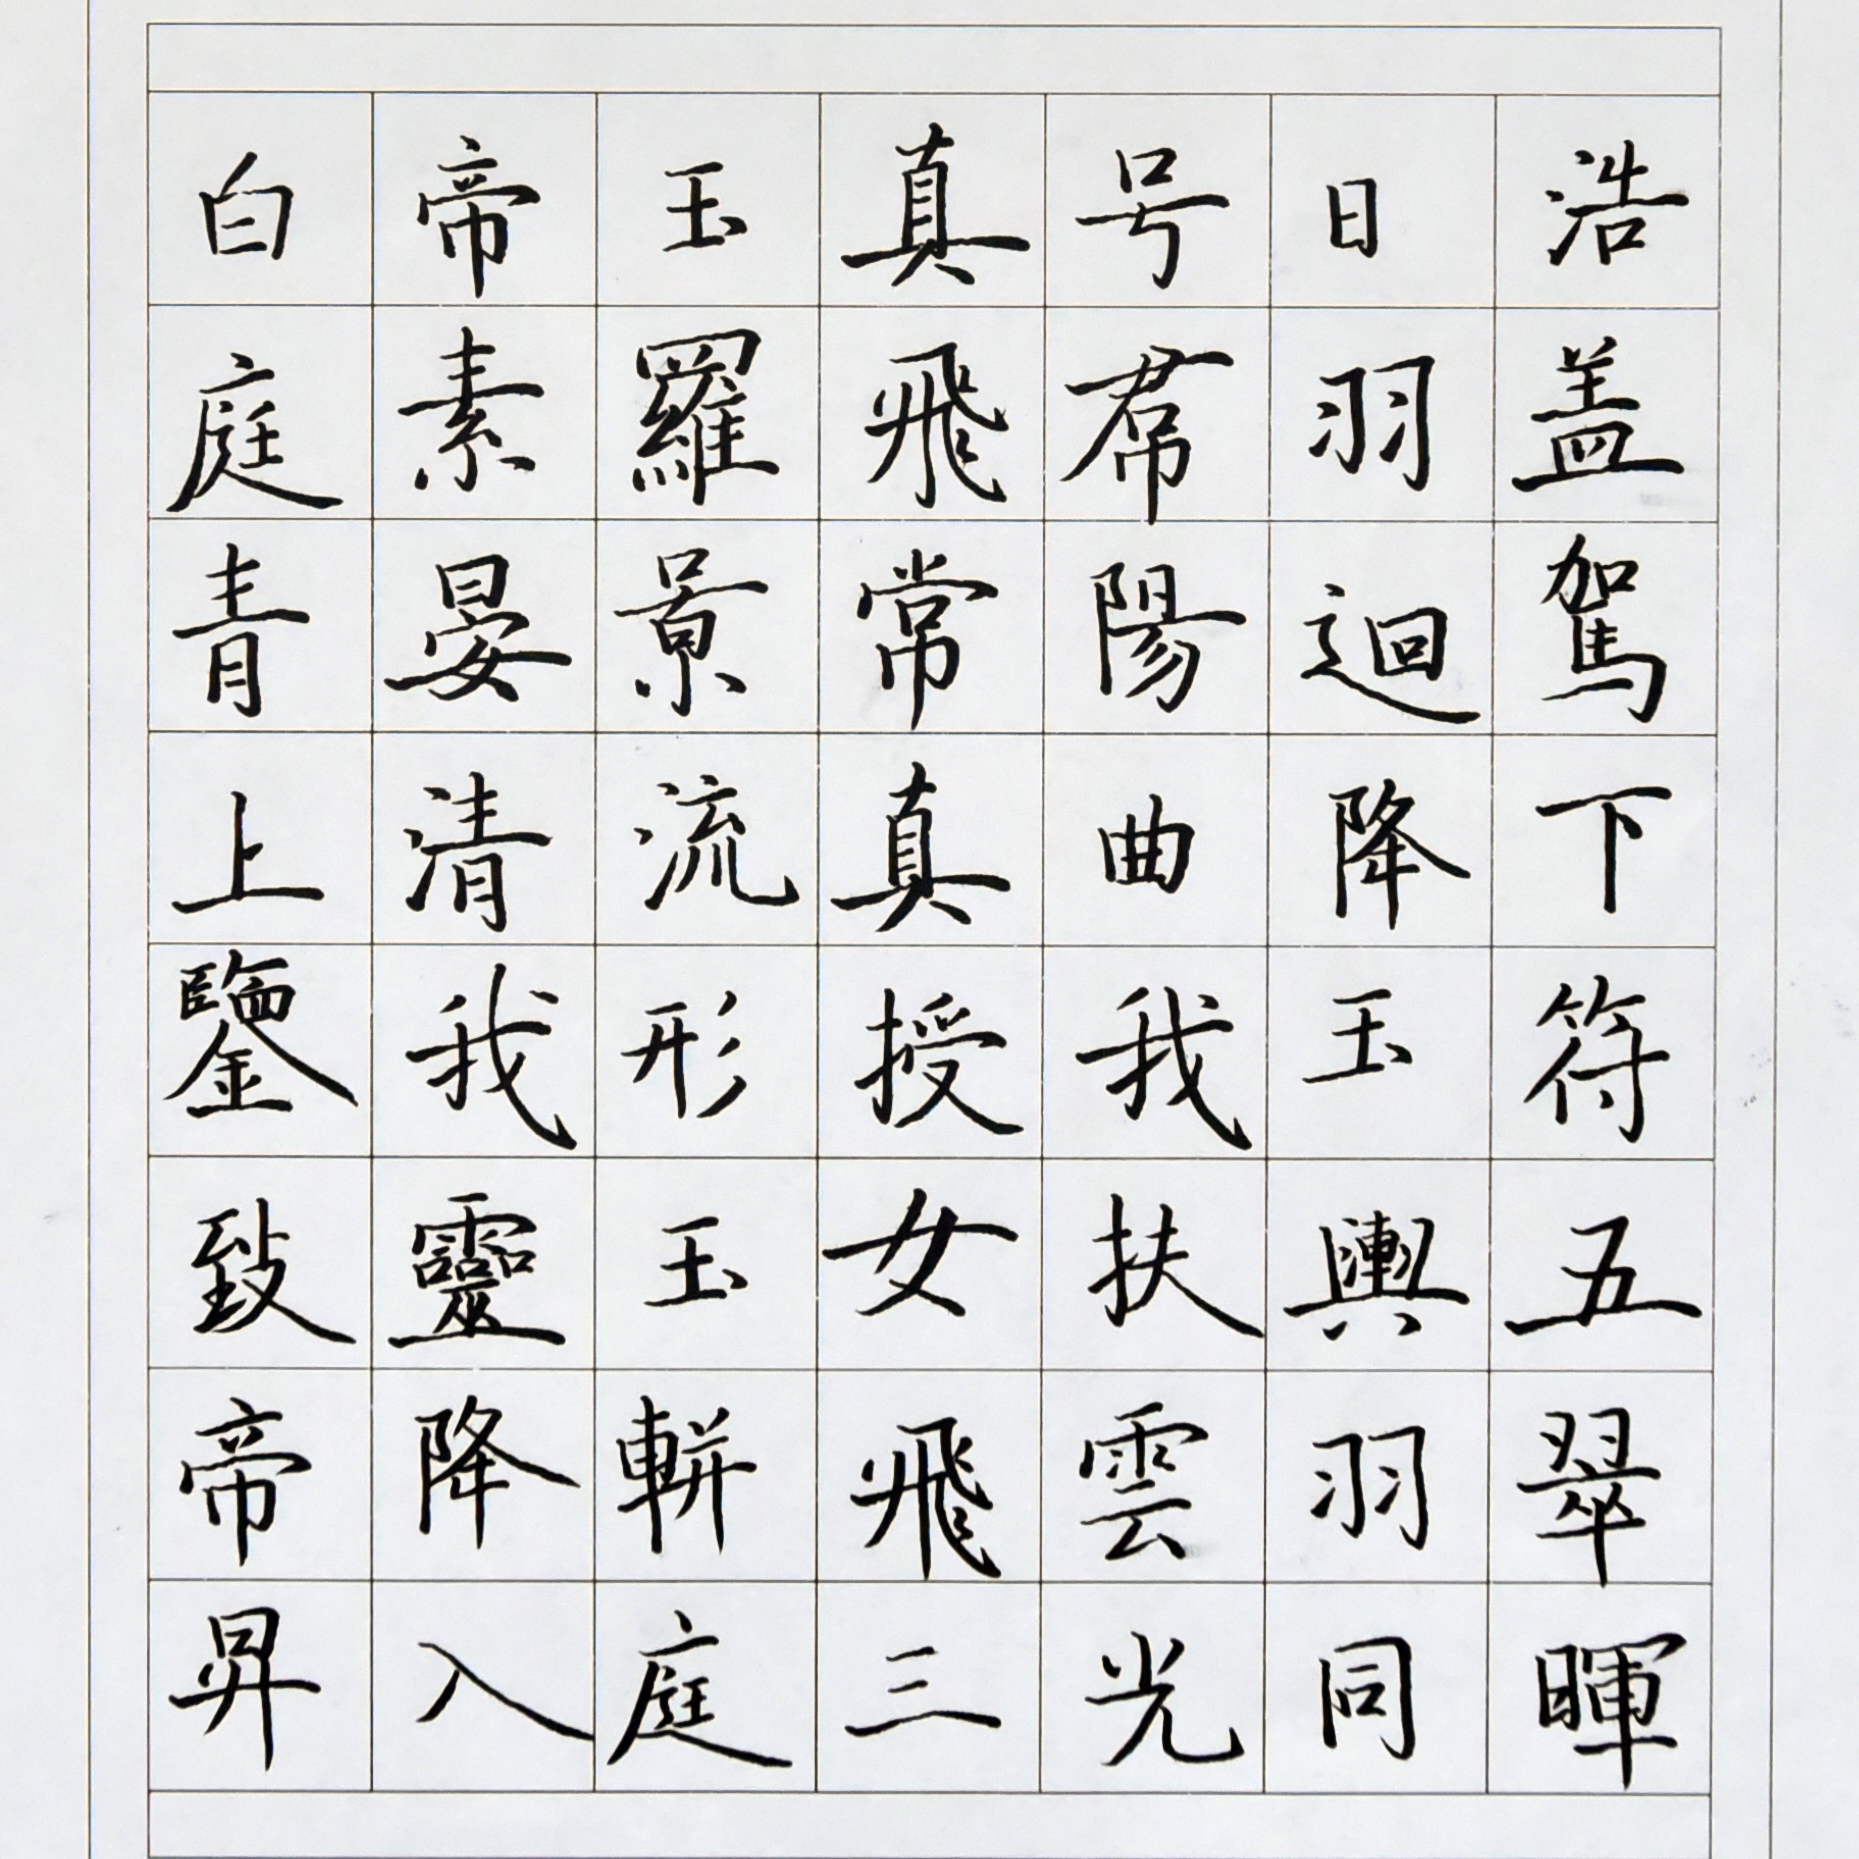 浩盖駕下符五翠暉
日羽迴降玉輿羽同
号帬陽曲我扶雲光
真飛常真授女飛三
玉羅景流形玉軿庭
帝素晏清我靈降入
白庭青上鑒致帝昇